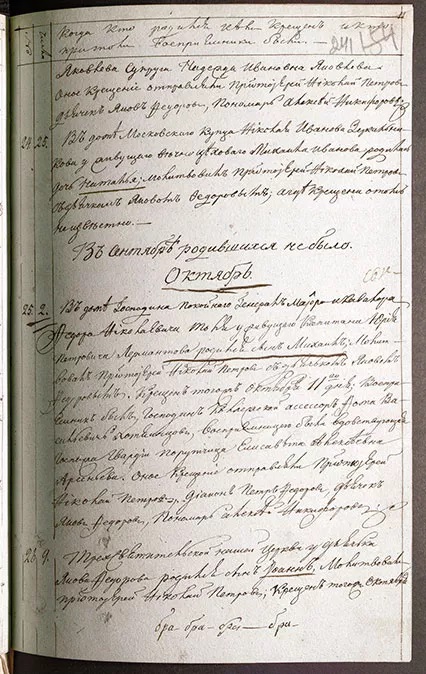 Когда кто родился и кѣмъ Крещенъ и кто
притомъ Воспрiемники были
241 154
Яковлева Супруга Надежда Ивановна Яковлева
Оное Крещенiе отправляли Протоiерей Николай Петровъ
Дьячекъ Яковъ Федоровъ, Пономарь Алексѣй Никифоровъ
24. 25. Въ домѣ Московскаго Купца Николая Иванова
у живущаго Михаила Иванова родилась
дочь Наталья; молитвовалъ Протоiерей Николай Петровъ
съ дьячкомъ Яковомъ Федоровымъ; а гдѣ крещена
неизвѣстно.
Въ Сентябрѣ родившихся не было.
Октябрь.
25. 2. Въ домѣ Господина покойнаго Генералъ Маiора и Кавалера
Федора Николаевича Толя у живущаго Капитана Юрiя
Петровича Лермантова родился сынъ Михаилъ; Молит-
вовалъ Протоiерей Николай Петровъ съ дьячкомъ Яковомъ
Федоровымъ, Крещенъ тогожъ Октября 11 дня, Воспрi-
емникъ былъ, Господинъ Коллежской ассесоръ Фома Ва-
сильевичъ Хотяинцовъ, Воспрiемницею была вдовствующая
Госпожа Гвардiи Порутчица Елисавета Алексѣевна
Арсеньева. Оное Крещенiе отправляли Протоiерей
Николай Петровъ, Дiаконъ Петръ Федоровъ, дьячекъ
Яковъ Федоровъ, Пономарь Алексѣй Никифоровъ
26. 9. Трехъ Святительской нашей Церкви у дьячка
Якова Федорова родился сынъ Иванъ, Молитвовалъ
протоiерей Николай Петровъ, Крещенъ тогожъ Октября